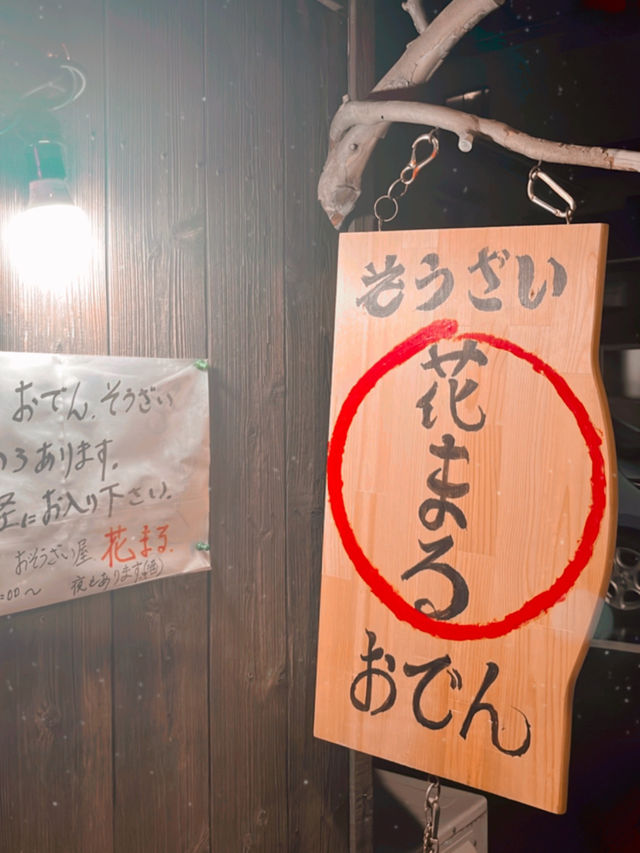 おでん、そうざい
いろあります。
軽にお入り下さい。
おそうざい屋 花まる
:00〜 夜もあります(酒)
そうざい
花まる
おでん